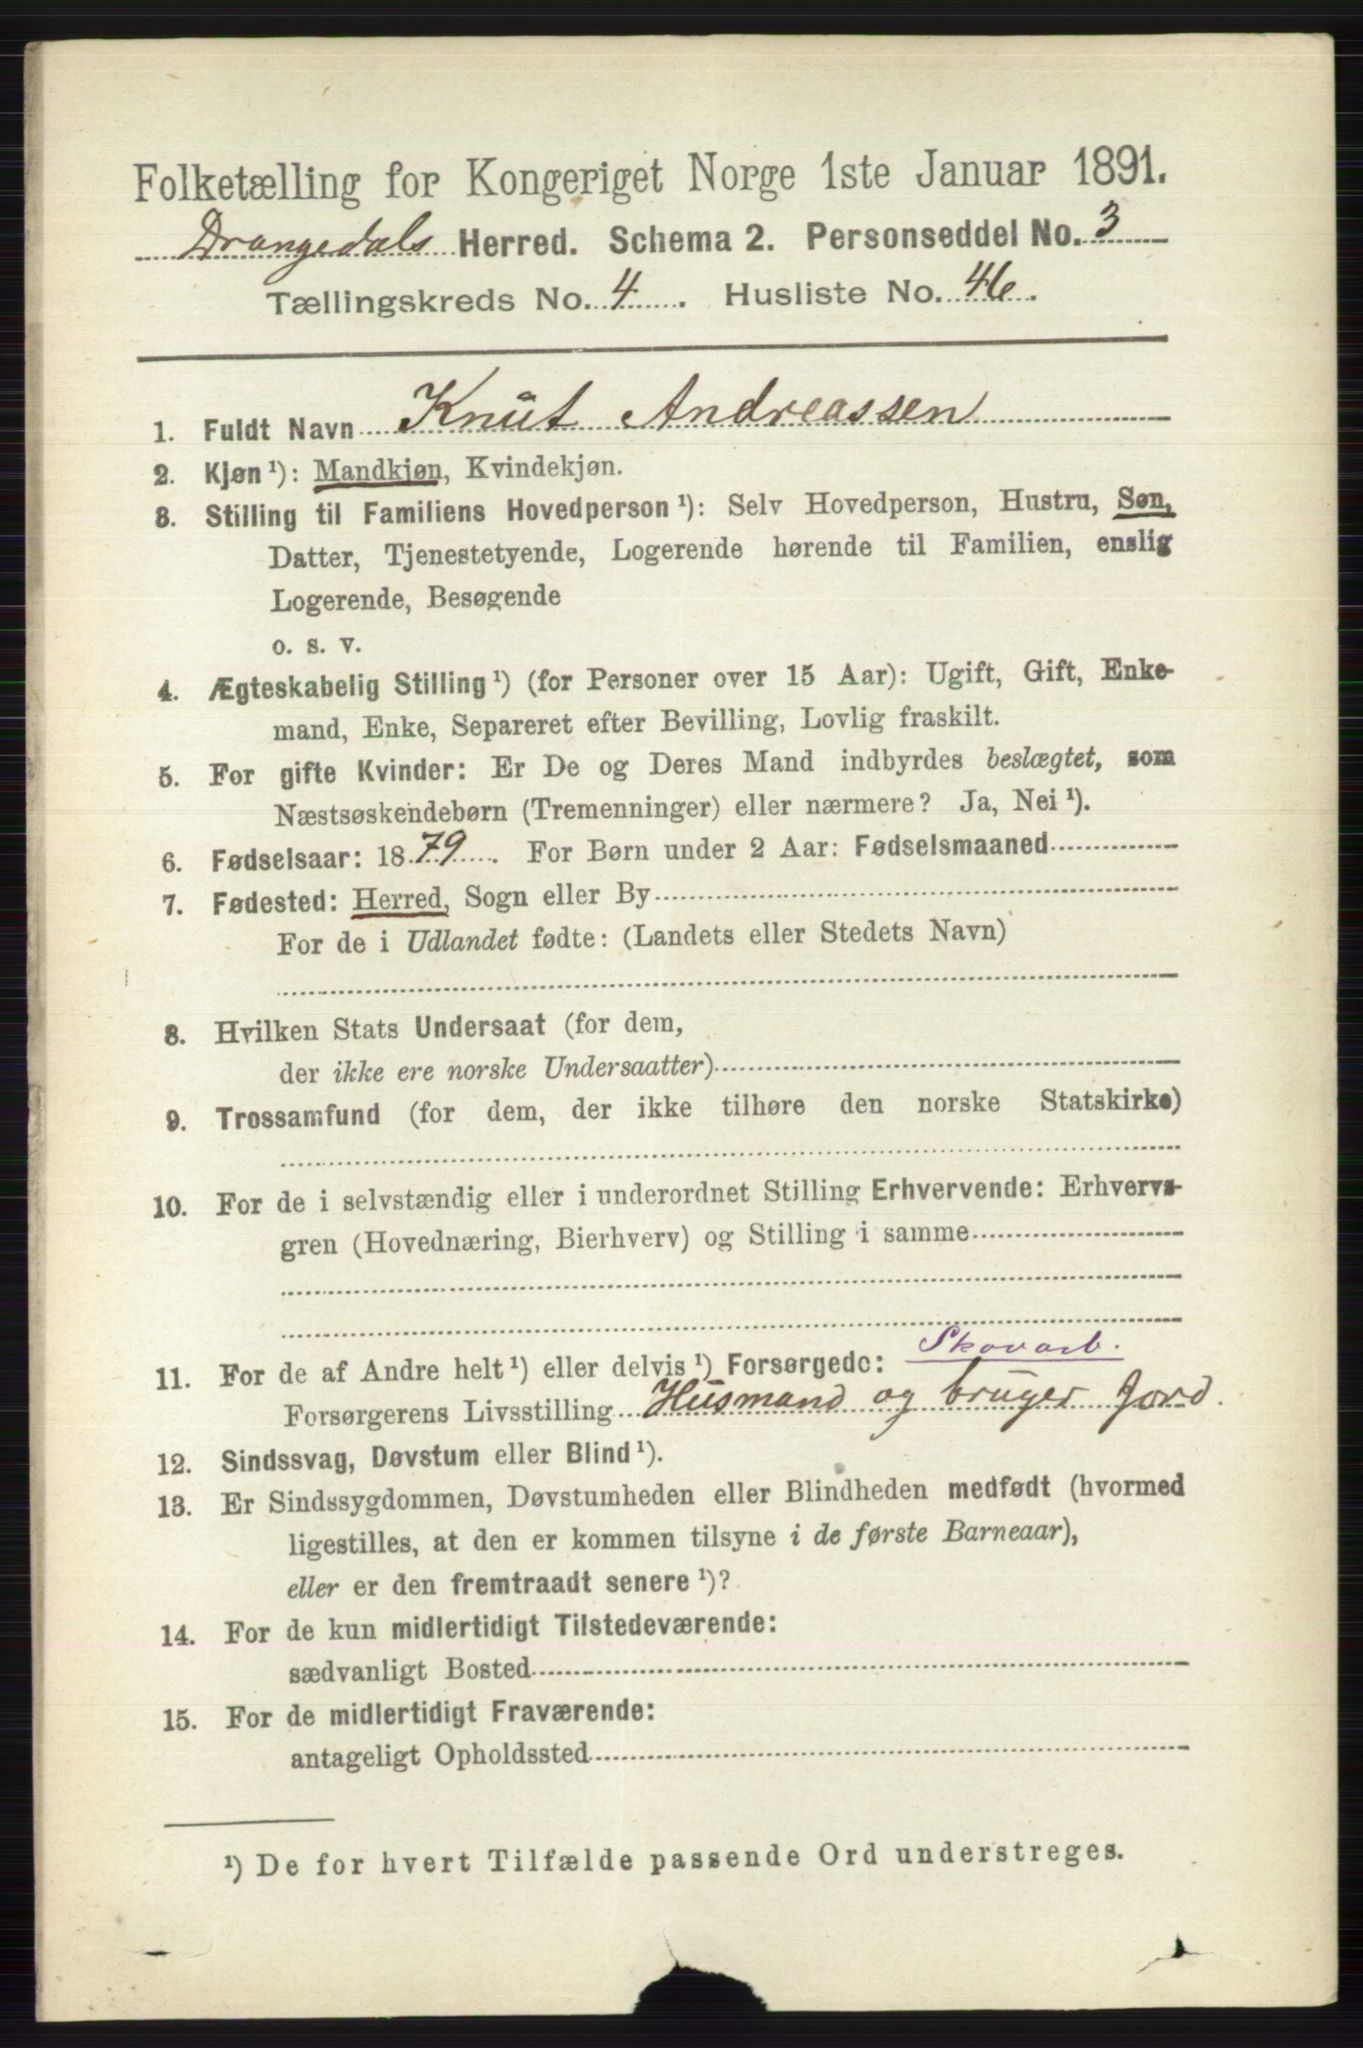 Folketælling for Kongeriget Norge 1ste Januar 1891.
Drangedals Herred. Schema 2. Personseddel No. 3
Tællingskreds No. 4. Husliste No. 46.
1. Fuldt Navn Knut Andreassen
2. Kjøn ¹): Mandkjøn, Kvindekjøn.
3. Stilling til Familiens Hovedperson ¹): Selv Hovedperson, Hustru, Søn,
Datter, Tjenestetyende, Logerende hørende til Familien, enslig
Logerende, Besøgende
o. s. v.
4. Ægteskabelig Stilling ¹) (for Personer over 15 Aar): Ugift, Gift, Enke-
mand, Enke, Separeret efter Bevilling, Lovlig fraskilt.
5. For gifte Kvinder: Er De og Deres Mand indbyrdes beslægtet, som
Næstsøskendebørn (Tremenninger) eller nærmere? Ja, Nei ¹).
6. Fødselsaar: 1879. For Børn under 2 Aar: Fødselsmaaned
7. Fødested: Herred, Sogn eller By
For de i Udlandet fødte: (Landets eller Stedets Navn)
8. Hvilken Stats Undersaat (for dem,
der ikke ere norske Undersaatter)
9. Trossamfund (for dem, der ikke tilhøre den norske Statskirke)
10. For de i selvstændig eller i underordnet Stilling Erhvervende: Erhvervs-
gren (Hovednæring, Bierhverv) og Stilling i samme
Skovarb.
11. For de af Andre helt ¹) eller delvis ¹) Forsørgede:
Forsørgerens Livsstilling Husmand og bruger Jord.
12. Sindssvag, Døvstum eller Blind ¹).
13. Er Sindssygdommen, Døvstumheden eller Blindheden medfødt (hvormed
ligestilles, at den er kommen tilsyne i de første Barneaar),
eller er den fremtraadt senere ¹)?
14. For de kun midlertidigt Tilstedeværende:
sædvanligt Bosted
15. For de midlertidigt Fraværende:
antageligt Opholdssted
¹) De for hvert Tilfælde passende Ord understreges.